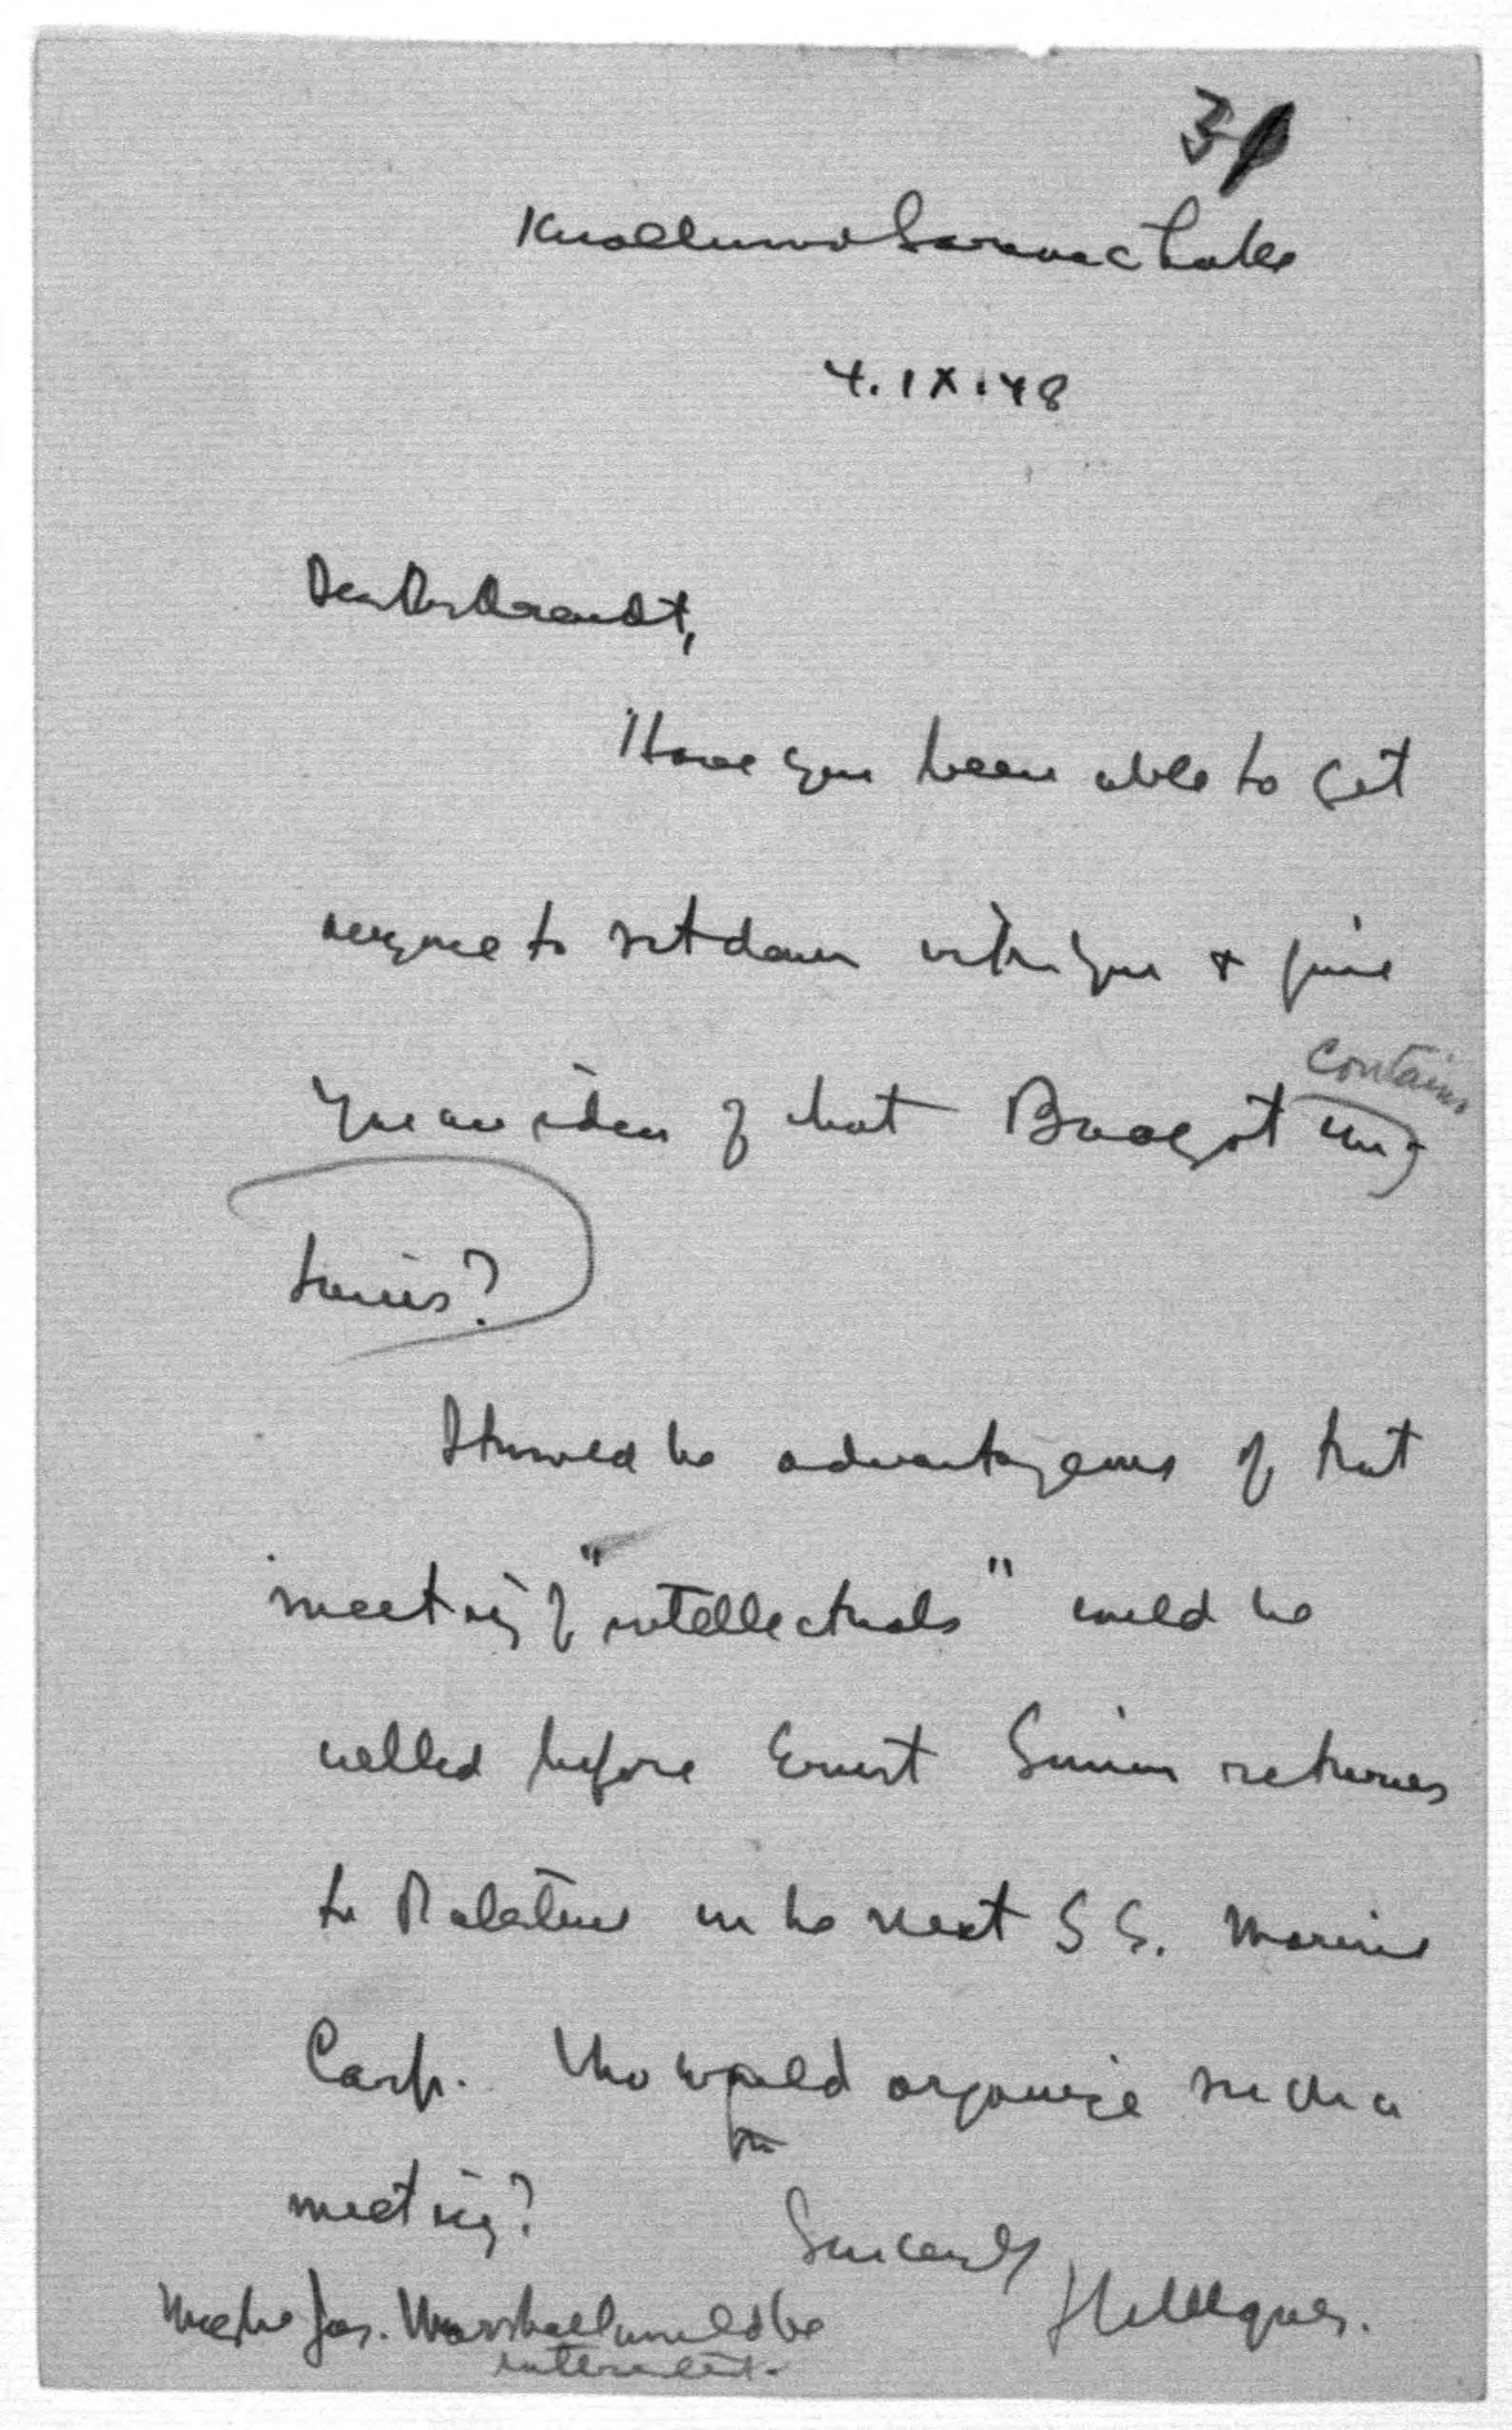 Knollwood Saranac Lake
4.IX.48
Dear Mr Brandt,
Have you been able to get
anyone to sit down with you & give
you an idea of that
contains
It would be advantageous if that
meeting of "intellectuals" could be
called before Ernst Simon returns
to Palestine on the next S S. Marine
Carp. Who would organize such a
meeting?
Sincerely
Maybe Jas. Marshall would be
interested.